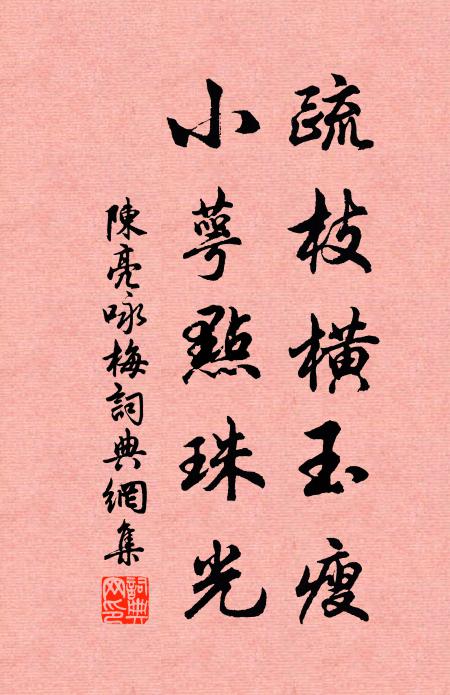 疏枝橫玉瘦
小萼點珠光
陳亮咏梅詞典網集
詞典网印